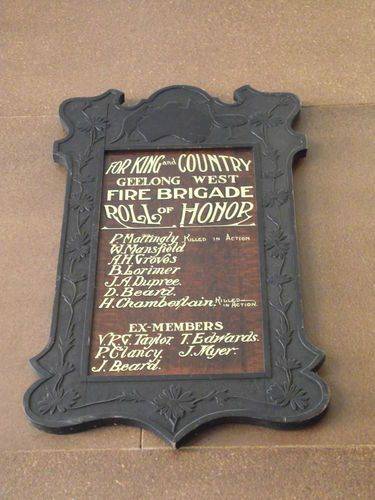 FOR KING and COUNTRY
GEELONG WEST
FIRE BRIGADE
ROLL OF HONOR
P. Mattingly KILLED IN ACTION
W. Mansfield
A.H. Groves
B. Lorimer
J.A. Dupree.
D. Beard.
H. Chamberlain. KILLED IN ACTION.
EX-MEMBERS
V.R.G. Taylor T. Edwards.
P. Clancy. J. Myer.
J. Beard.